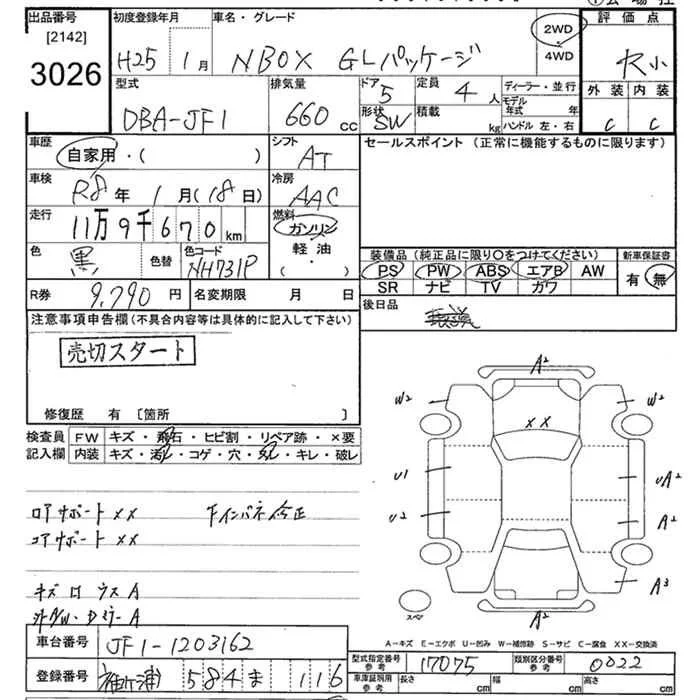 出品番号 [2142] 3026
初度登録年月 H25 1月
車名・グレード NBOX GLパッケージ
2WD・4WD
評価点
外装 内装
C C
型式 DBA-JF1
排気量 660 cc
ドア 5
形状 SW
定員 4 人
積載 kg
ディーラー・並行
モデル年式 年
ハンドル 左・右
車歴 自家用・( )
シフト AT
セールスポイント（正常に機能するものに限ります）
車検 R8年 1月(18日)
冷房 AAC
走行 11万9千670km
燃料 ガソリン・軽油・( )
色 黒 色替
色コード NH731P
装備品（純正品に限り〇をつけてください）
PS PW ABS エアB AW
SR ナビ TV ガワ
新車保証書 有 無
R券 9,790円
名変期限 月 日
後日品
注意事項申告欄(不具合内容等は具体的に記入して下さい)
売切スタート
修復歴 有 〔箇所 〕
検査員記入欄
FW キズ・飛石・ヒビ割・リペア跡・×要
内装 キズ・汚れ・コゲ・穴・スレ・キレ・破レ
ロアサポート ××
コアサポート ××
A2
W2 W2
××
U1 UA2
U2 A2
A3
A2
スペア
A-キズ E-エクボ U-凹み W-補修跡 S-サビ C-腐食 XX-交換済
車台番号 JF1-1203162
登録番号 袖ヶ浦 584 ま 116
型式指定番号 参考 17075
類別区分番号 参考 0022
車庫証明用 参考 長さ cm 幅 cm 高さ cm